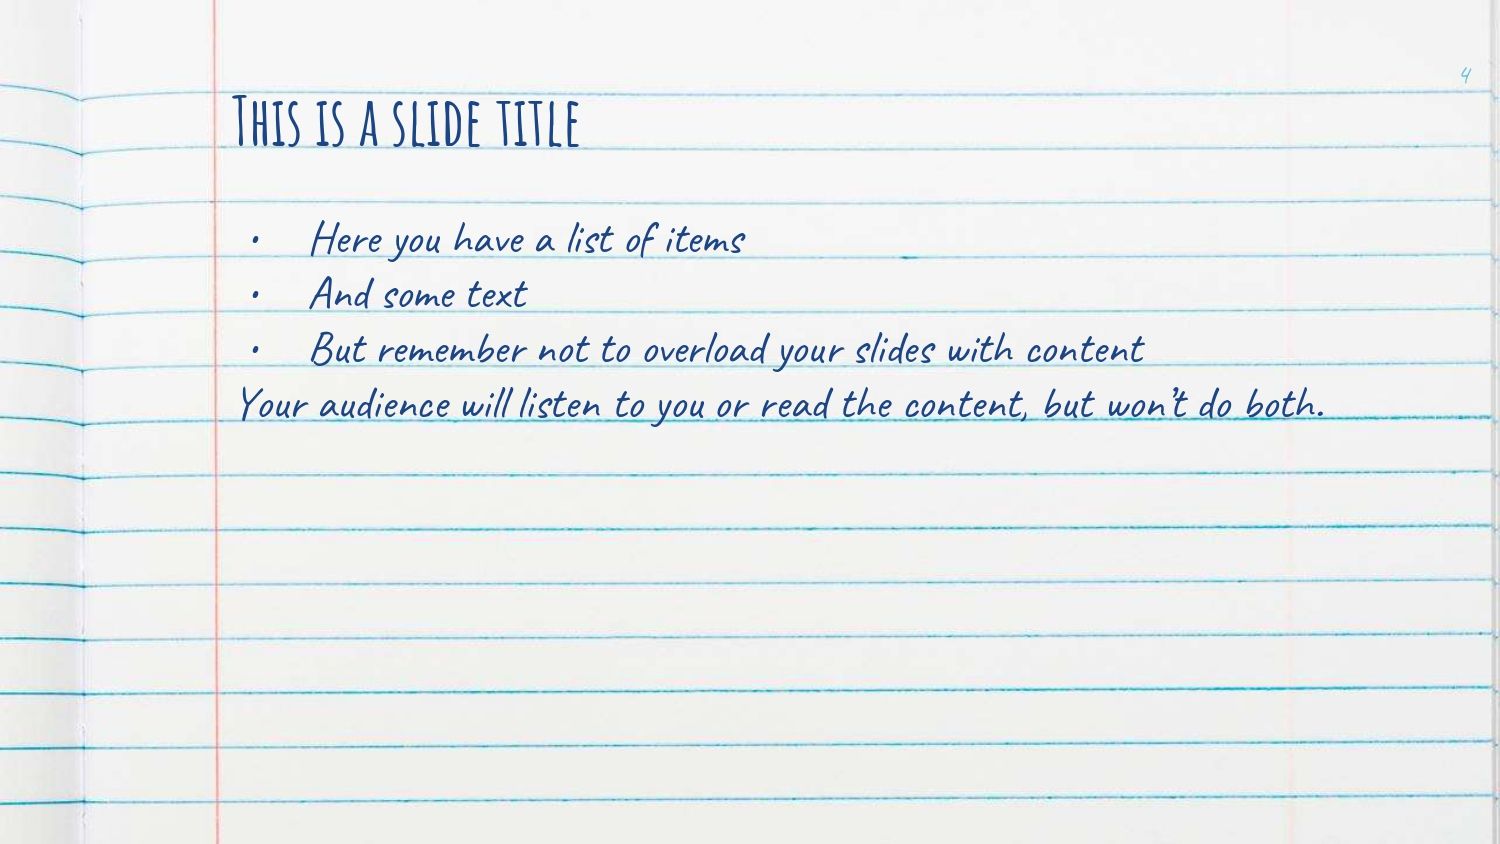 4
This is a slide title
• Here you have a list of items
• And some text
• But remember not to overload your slides with content
Your audience will listen to you or read the content, but won’t do both.